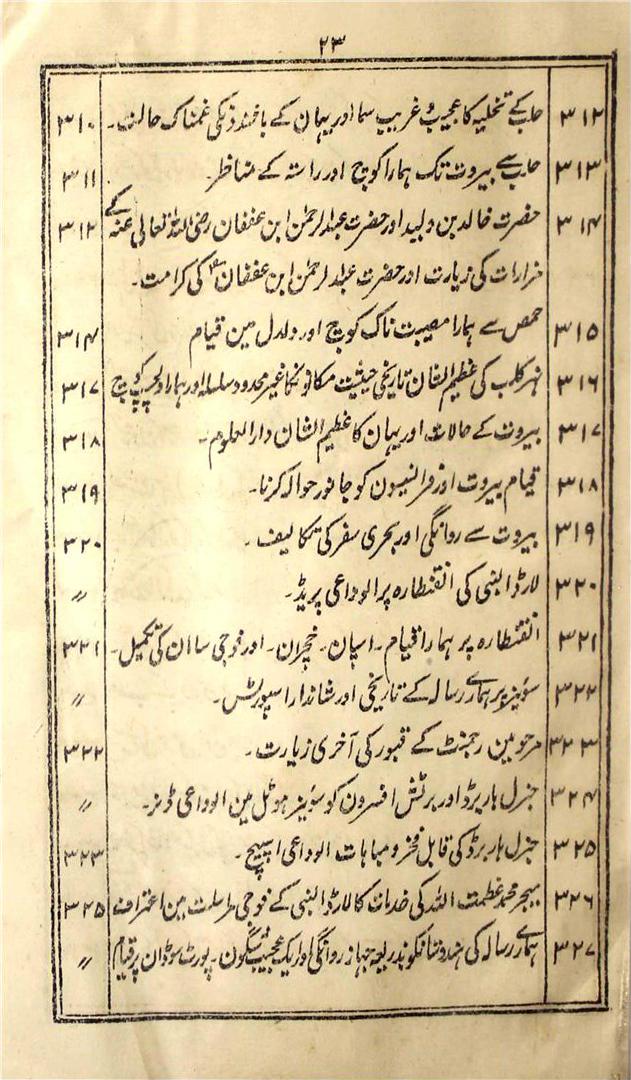 ۲۳
۳۱۲ حلب کے تخلیہ کا عجیب و غریب سما اور یہان کے باشندونکی غمناک حالت۔ ۳۱۰
۳۱۳ حلب سے بیروت تک ہمارا کوچ اور راستہ کے مناظر۔ ۳۱۱
۳۱۴ حضرت خالد بن ولید اور حضرت عبدالرحمٰن ابن عفان رضی اللہ تعالی عنہ کے ۳۱۲
مزارات کی زیارت اور حضرت عبدالرحمٰن ابن عفان رض کی کرامت۔
۳۱۵ حمص سے ہمارا مصیبت ناک کوچ اور دلدل مین قیام ۳۱۴
۳۱۶ نہر کلب کی عظیم الشان تاریخی حیثیت مکانونکا غیر محدود سلسلہ اور ہمارا دلچسپ کوچ ۳۱۷
۳۱۷ بیروت کے حالات اور یہان کا عظیم الشان دارالعلوم۔ ۳۱۸
۳۱۸ قیام بیروت اور فرانسیسون کو جانور حوالہ کرنا۔ ۳۱۹
۳۱۹ بیروت سے روانگی اور بحری سفر کی تکالیف۔ ۳۲۰
۳۲۰ لارڈ النبی کی القنطارہ پر الوداعی پریڈ۔ 〃
۳۲۱ القنطارہ پر ہمارا قیام۔ اسپان۔ خچران۔ اور فوجی سامان کی تکمیل۔ ۳۲۱
۳۲۲ سوئیز پر ہمارے رسالہ کے تاریخی اور شاندار اسپورٹس۔ 〃
۳۲۳ مرحومین رجمنٹ کے قبور کی آخری زیارت۔ ۳۲۲
۳۲۴ جنرل ہاربرڈ اور برٹش افسرون کو سوئیز ہوٹل مین الوداعی ڈنر۔ 〃
۳۲۵ جنرل ہاربرڈ کی قابل فخر و مباہات الوداعی اسپیچ۔ ۳۲۳
۳۲۶ میجر محمد عظمت اللہ کی خدمات کا لارڈ النبی کے فوجی مراسلت مین اعتراف ۳۲۵
۳۲۷ ہمارے رسالہ کی ہندوستانکو بذریعہ جہاز روانگی اور ایک عجیب شگون۔ پورٹ سوڈان پر قیام 〃